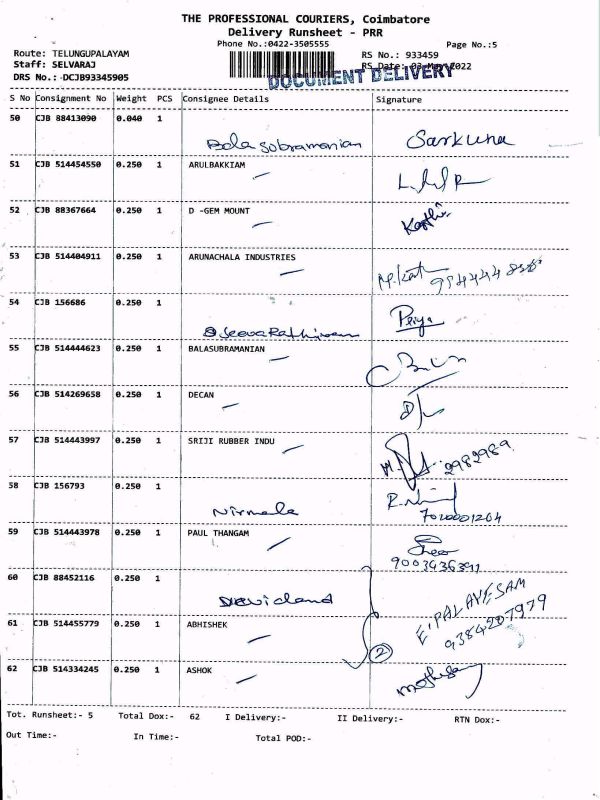 THE PROFESSIONAL COURIERS, Coimbatore
Delivery Runsheet - PRR
Phone No.:0422-3505555
Page No.:5
Route: TELUNGUPALAYAM
RS No.: 933459
Staff: SELVARAJ
RS Date: 03-May-2022
DRS No.: DCJB93345905
DOCUMENT DELIVERY
S No Consignment No Weight PCS Consignee Details Signature
50 CJB 88413090 0.040 1
Bala Sobramanian Sarkuna
51 CJB 514454550 0.250 1 ARULBAKKIAM
52 CJB 88367664 0.250 1 D -GEM MOUNT
53 CJB 514404911 0.250 1 ARUNACHALA INDUSTRIES
54 CJB 156686 0.250 1
Priya
55 CJB 514444623 0.250 1 BALASUBRAMANIAN
56 CJB 514269658 0.250 1 DECAN
57 CJB 514443997 0.250 1 SRIJI RUBBER INDU
2982989
58 CJB 156793 0.250 1
Nirmala
7010001204
59 CJB 514443978 0.250 1 PAUL THANGAM
60 CJB 88452116 0.250 1
E. PALAYESAM
9384207979
61 CJB 514455779 0.250 1 ABHISHEK
2
62 CJB 514334245 0.250 1 ASHOK
Tot. Runsheet:- 5 Total Dox:- 62 I Delivery:- II Delivery:- RTN Dox:-
Out Time:- In Time:- Total POD:-